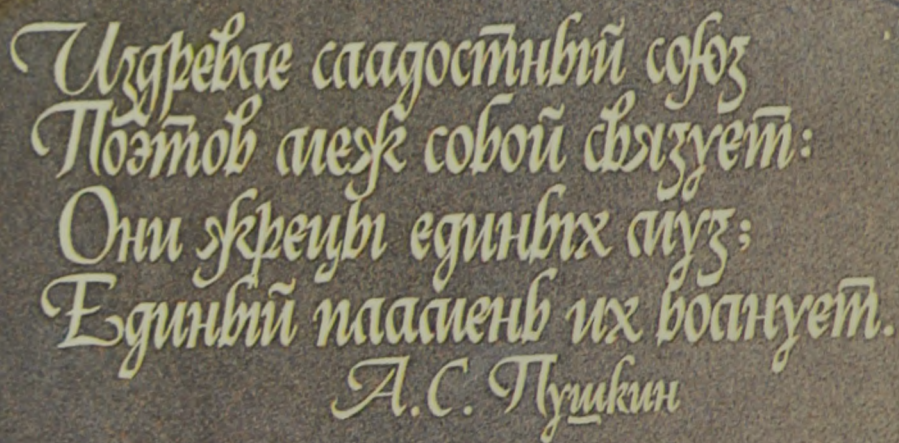 Издревле сладостный союз
Поэтов меж собой связует:
Они жрецы единых муз;
Единый пламень их волнует.
А.С. Пушкин